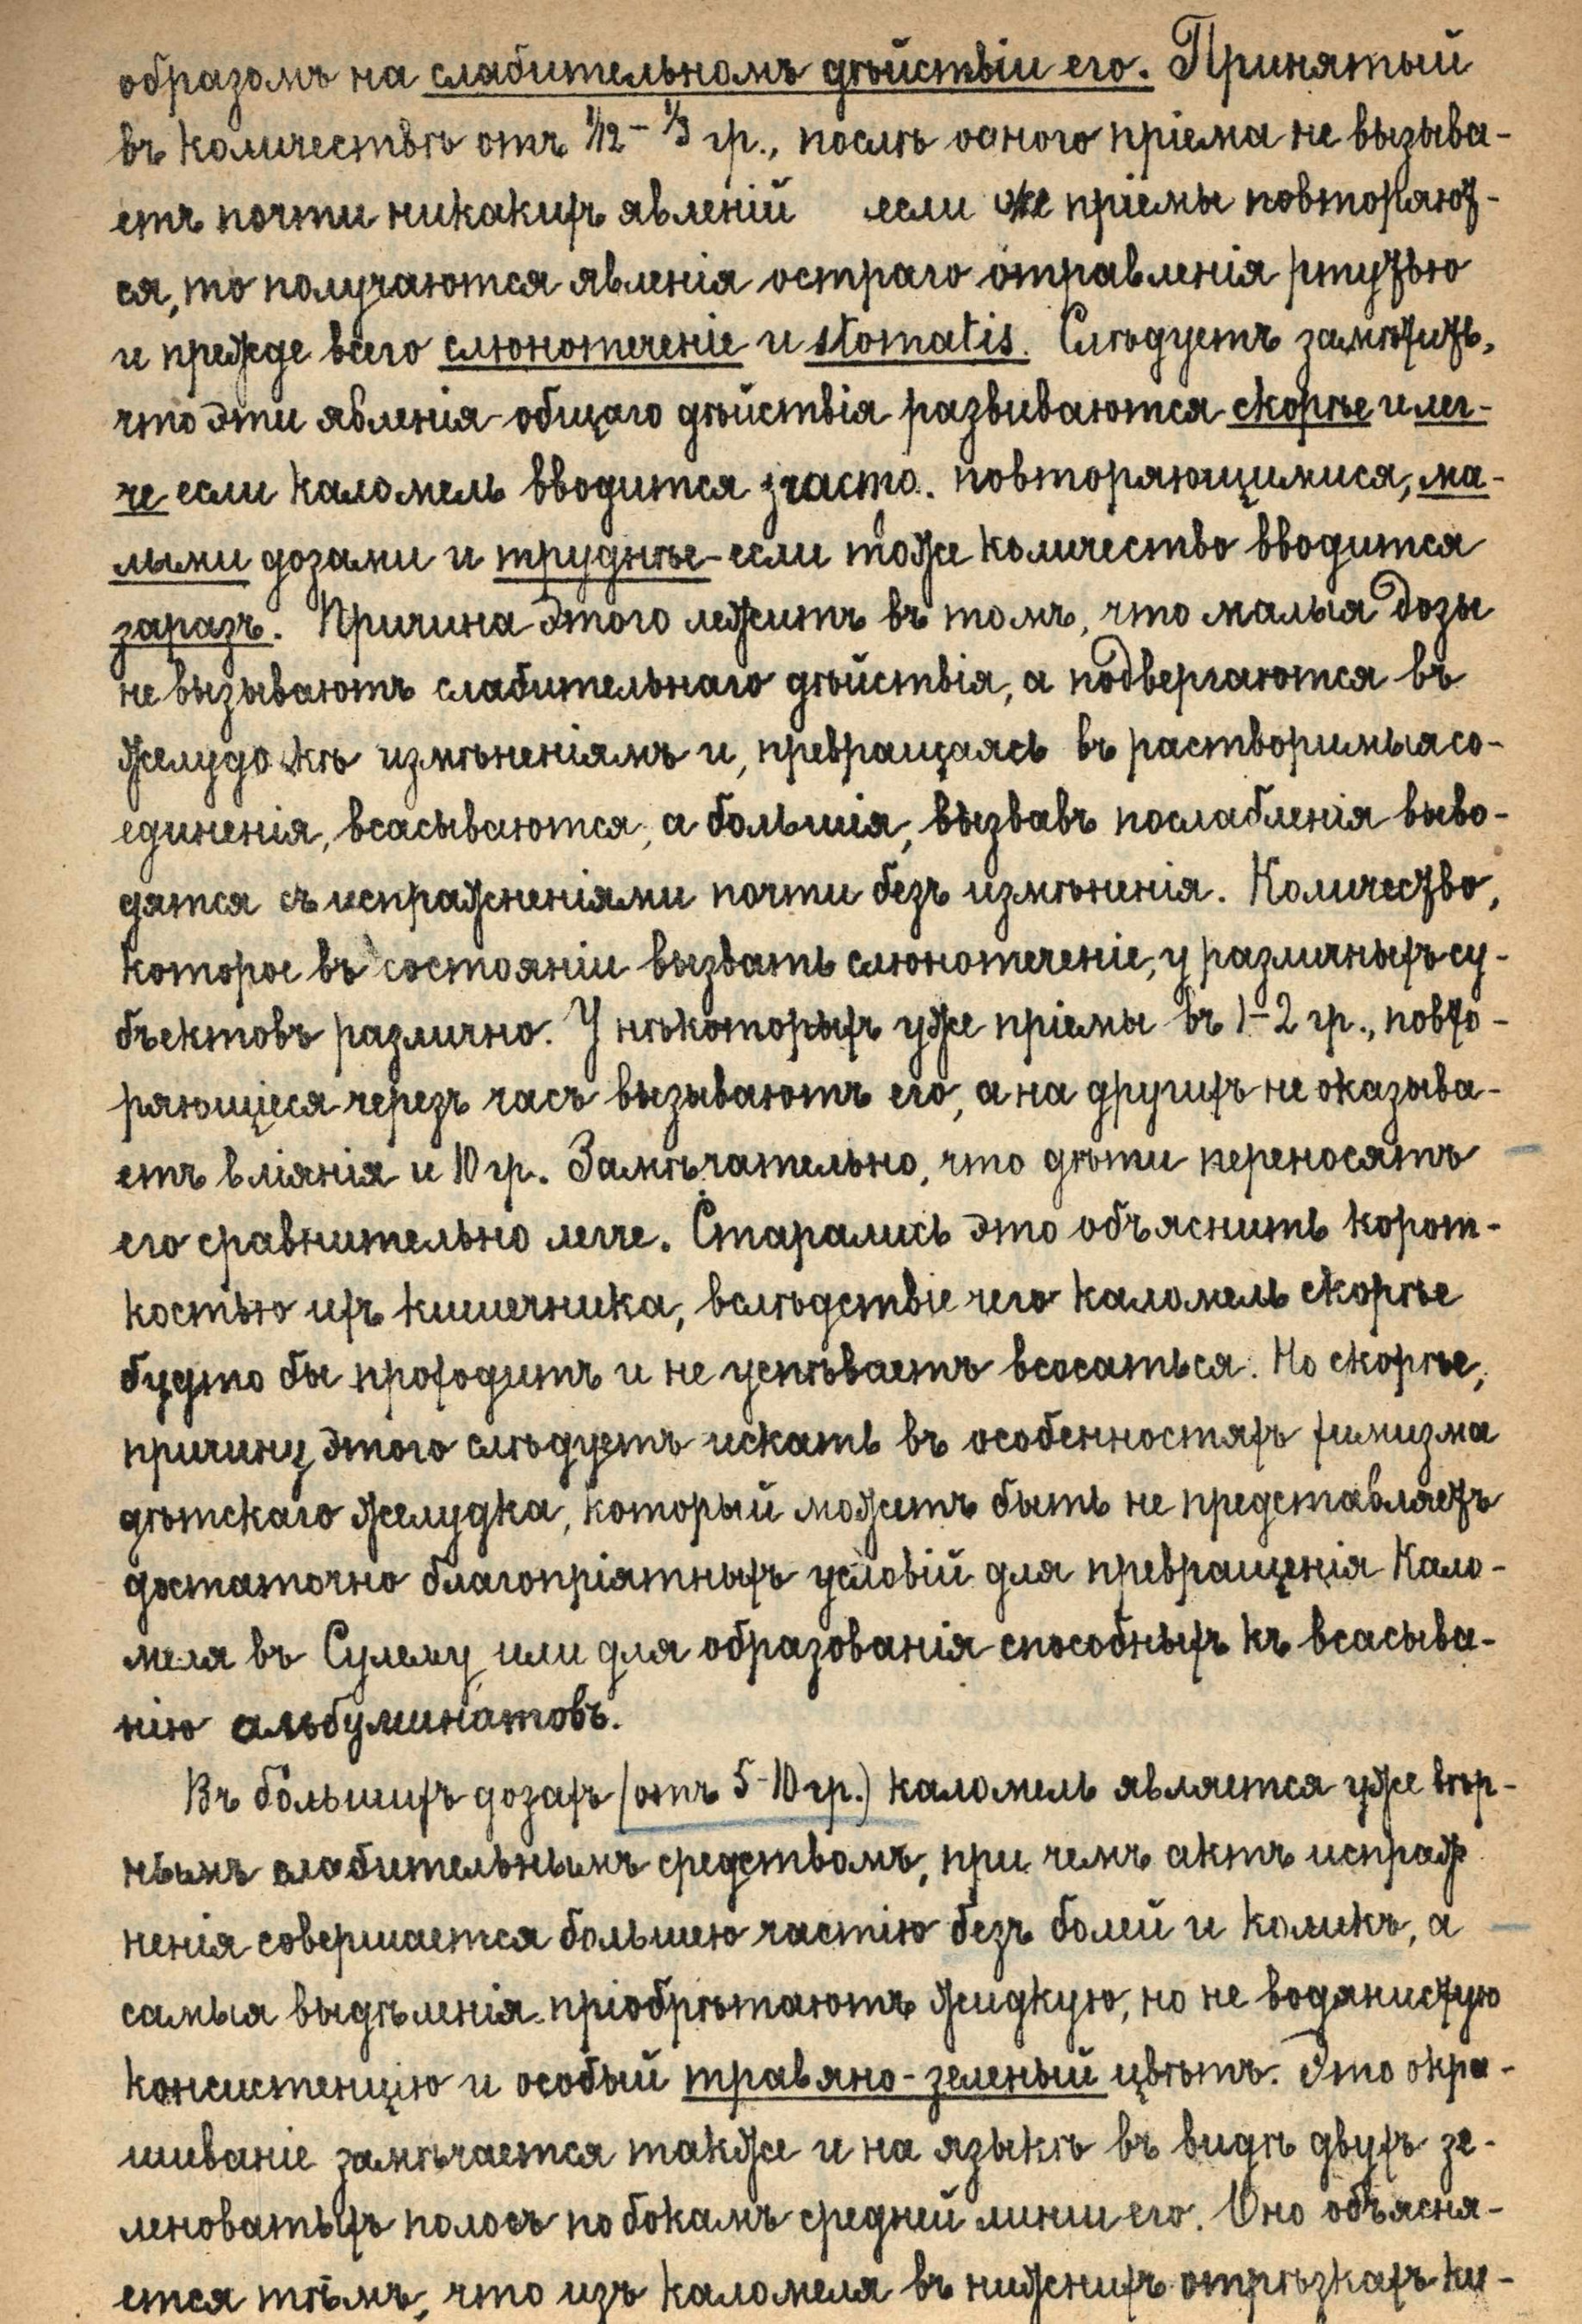 образомъ на слабительномъ дѣйствіи его. Принятый
въ количествѣ отъ 1/12 – 1/3 гр., послѣ одного пріема не вызыва-
етъ почти никакихъ явленій если же пріемы повторяют-
ся, то получаются явленія остраго отравленія ртутью
и прежде всего слюнотеченіе и stomatis. Слѣдуетъ замѣтить,
что эти явленія общаго дѣйствія развиваются скорѣе и лег-
че если каломель вводится часто. повторяющимися, ма-
лыми дозами и труднѣе – если тоже количество вводится
заразъ. Причина этого лежитъ въ томъ, что малыя дозы
не вызываютъ слабительнаго дѣйствія, а подвергаются въ
желудокѣ измѣненіямъ и, превращаясь въ растворимыя со-
единенія, всасываются, а большія, вызвавъ послабленія выво-
дятся съ испражненіями почти безъ измѣненія. Количество,
которое въ состояніи вызвать слюнотеченіе, у различныхъ су-
бъектовъ различно. У нѣкоторыхъ уже пріемы въ 1–2 гр., повто-
ряющіеся черезъ часъ вызываютъ его, а на другихъ не оказыва-
етъ вліянія и 10 гр. Замѣчательно, что дѣти переносятъ
его сравнительно легче. Старались это объяснить корот-
костью ихъ кишечника, вслѣдствіе чего каломель скорѣе
будто бы проходитъ и не успѣваетъ всосаться. Но скорѣе,
причину этого слѣдуетъ искать въ особенностяхъ химизма
дѣтскаго желудка, который можетъ быть не представляетъ
достаточно благопріятныхъ условій для превращенія Кало-
меля въ Сулему, или для образованія способныхъ къ всасыва-
нію альбуминатовъ.
Въ большихъ дозахъ (отъ 5–10 гр.) каломель является уже вѣр-
нымъ слабительнымъ средствомъ, при чемъ актъ испраж
ненія совершается большею частію безъ болей и коликъ, а
самыя выдѣленія пріобрѣтаютъ жидкую, но не водянистую
консистенцію и особый травяно-зеленый цвѣтъ. Это окра-
шиваніе замѣчается также и на языкѣ въ видѣ двухъ зе-
леноватыхъ полосъ по бокамъ средней линіи его. Оно объясня-
ется тѣмъ, что изъ каломеля въ нижнихъ отрѣзкахъ ки-